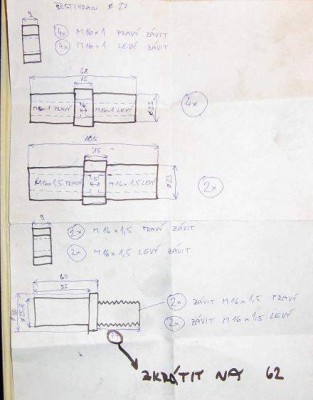 ŠESTIHRAN ⌀ 22
8
4x M10x1 PRAVÝ ZÁVIT
4x M10x1 LEVÝ ZÁVIT
68
15
M10x1 PRAV M10x1 LEVÝ
4x
15
M16x1,5 PRAVÝ M16x1,5 LEVÝ
2x
8
2x M16x1,5 PRAVÝ ZÁVIT
2x M16x1,5 LEVÝ ZÁVIT
60
2x ZÁVIT M16x1,5 PRAVÝ
2x ZÁVIT M16x1,5 LEVÝ
ZKRÁTIT NA 62